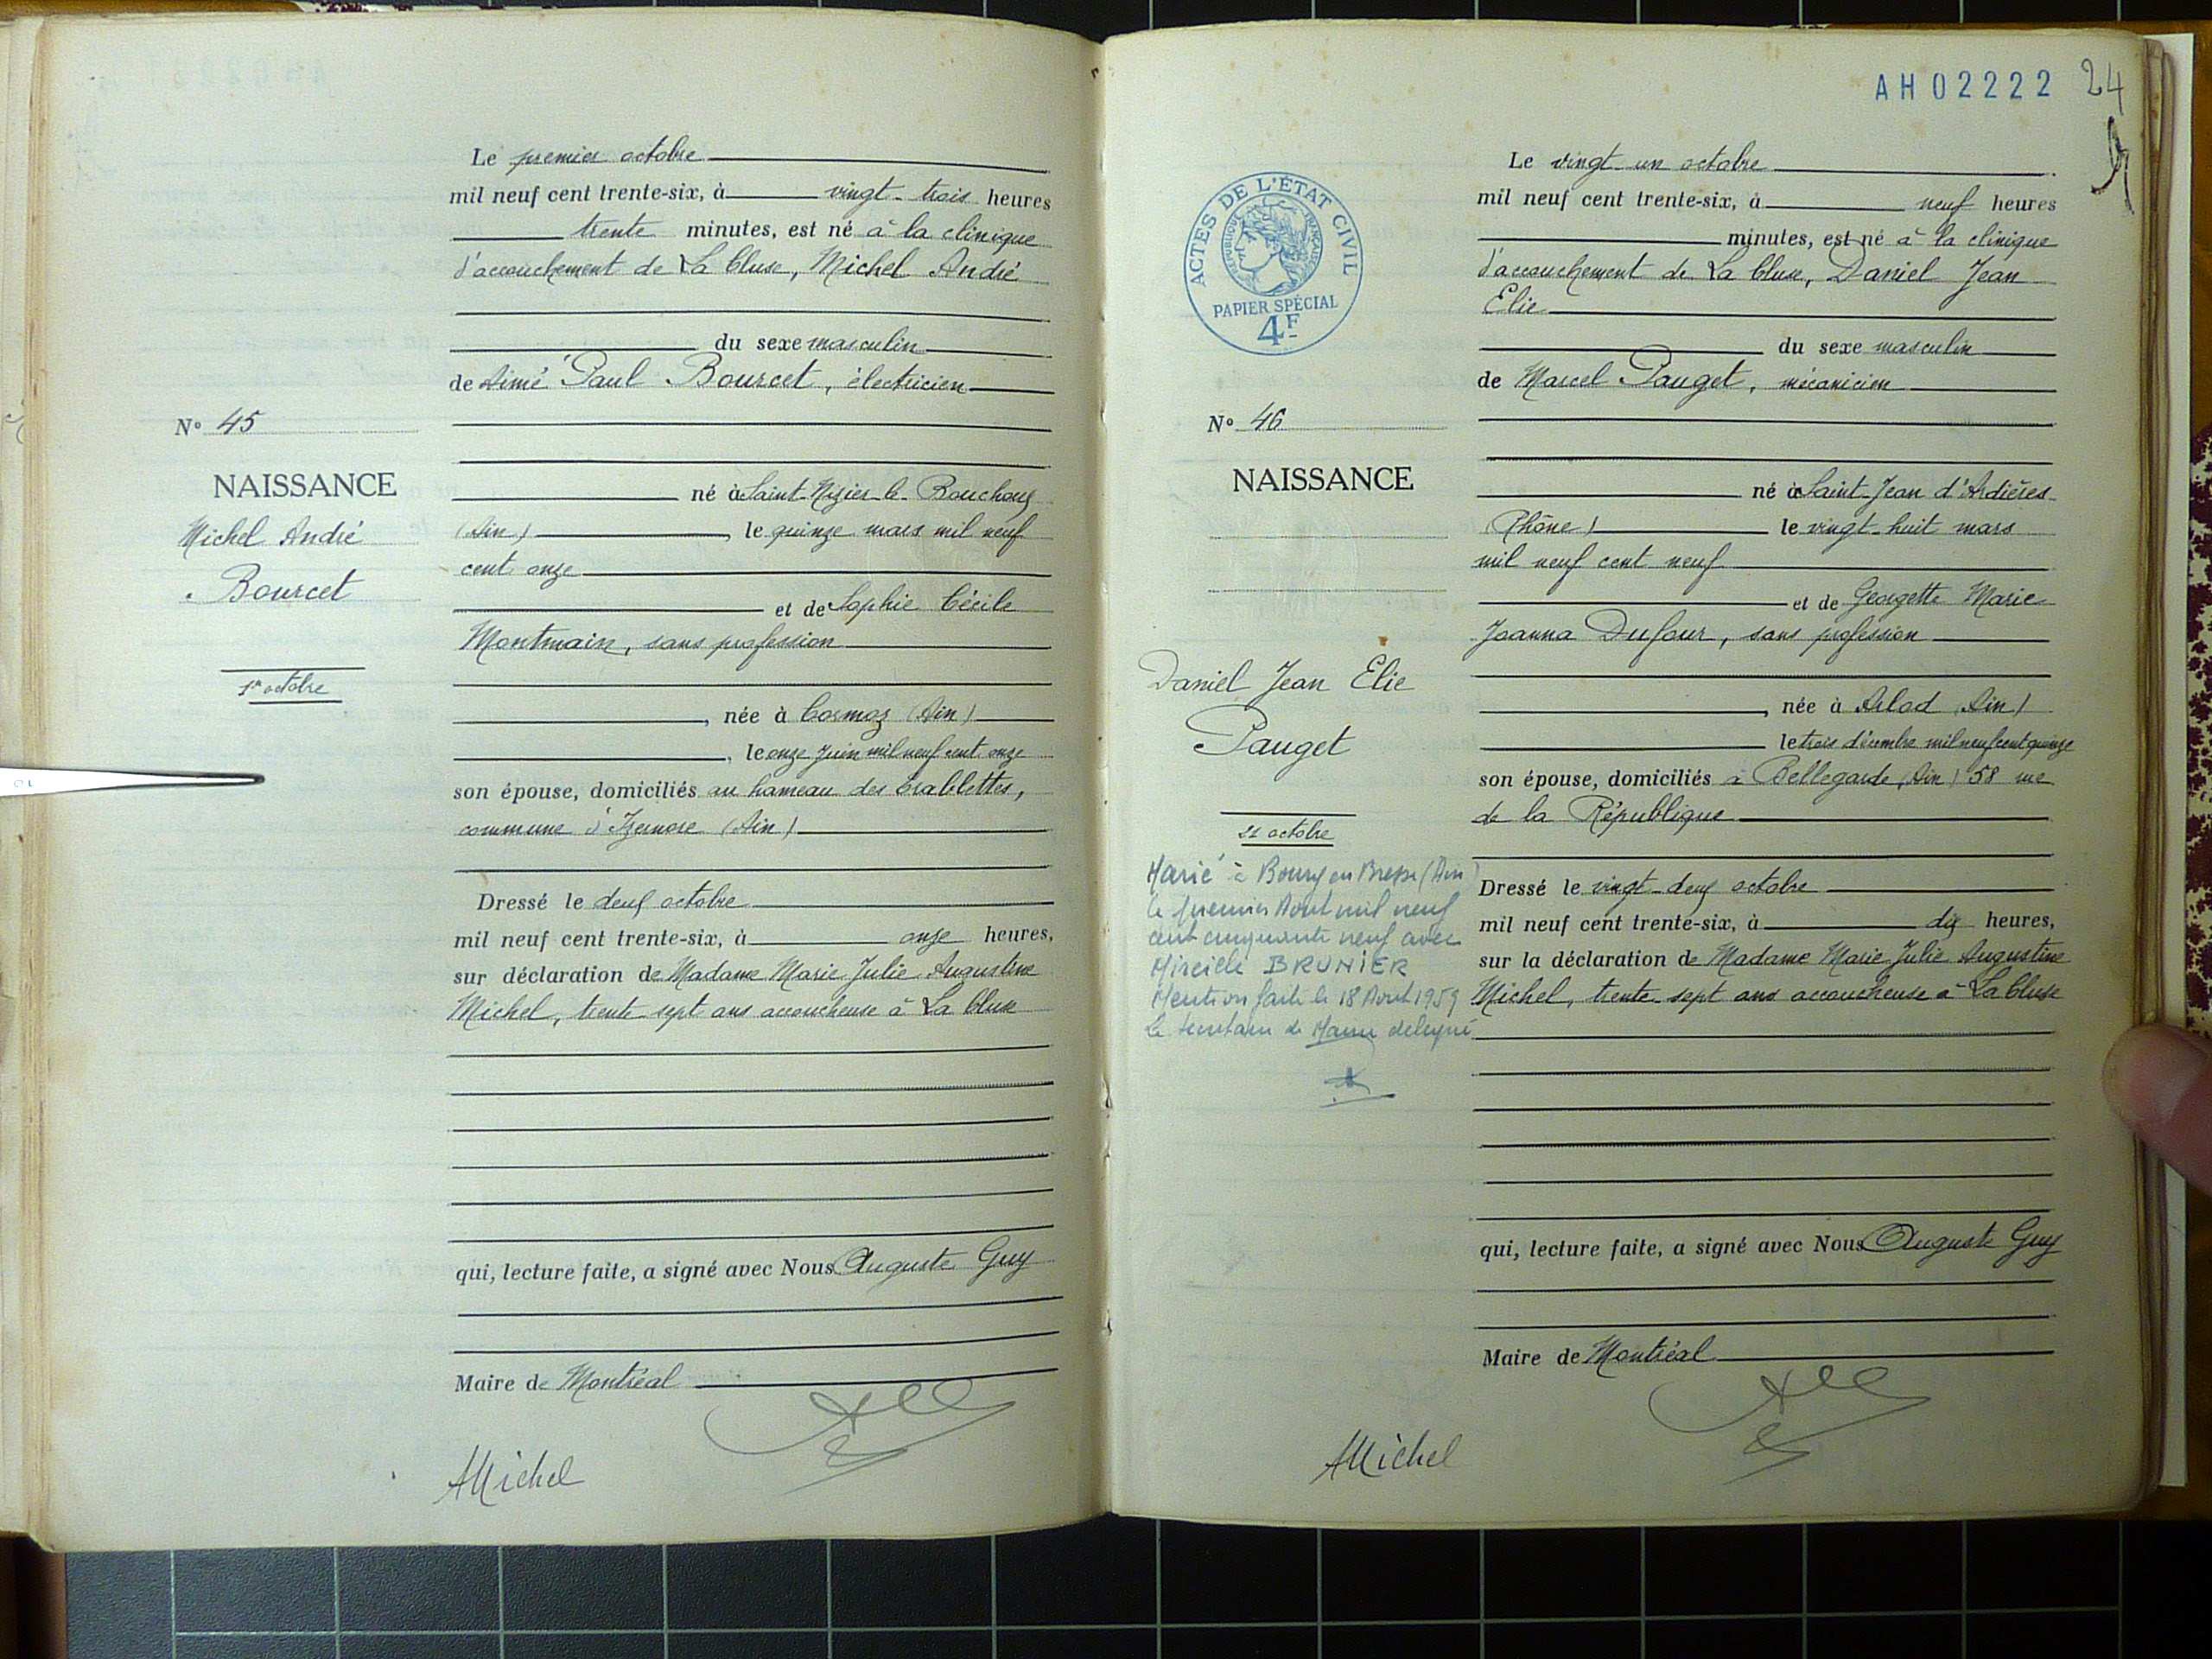 Le premier octobre
mil neuf cent trente-six, à vingt-trois heures
trente minutes, est né à la clinique
d'accouchement de La Cluse, Michel André
du sexe masculin
de Aimé Paul Bourcet, électricien
N° 45
NAISSANCE
Michel André
Bourcet
1er octobre
né à Saint-Nizier-le-Bouchoux
(Ain), le quinze mars mil neuf
cent onze
et de Sophie Cécile
Montmain, sans profession
, née à Cormoz (Ain)
, le onze Juin mil neuf cent onze
son épouse, domiciliés au hameau des
commune d'Izernore (Ain)
Dressé le deux octobre
mil neuf cent trente-six, à onze heures,
sur déclaration de Madame Marie Julie Augustine
Michel, trente-sept ans accoucheuse à La Cluse
qui, lecture faite, a signé avec Nous Auguste Guy
Maire de Montréal
AMichel
AH02222 24
ACTES DE L'ÉTAT CIVIL
RÉPUBLIQUE FRANÇAISE
PAPIER SPÉCIAL
4F
Le vingt-un octobre
mil neuf cent trente-six, à neuf heures
minutes, est né à la clinique
d'accouchement de La Cluse, Daniel Jean
Elie
du sexe masculin
de Marcel Pauget, mécanicien
N° 46
NAISSANCE
Daniel Jean Elie
Pauget
21 octobre
Marié à Bourg en Bresse (Ain)
le premier Aout mil neuf
cent cinquante neuf avec
Mireille BRUNIER
Mention faite le 18 Aout 1959
Le secrétaire de Mairie délégué
né à Saint-Jean d'Ardières
(Rhône) le vingt-huit mars
mil neuf cent neuf
et de Georgette Marie
Joanna Dufour, sans profession
, née à Arlod (Ain)
le trois décembre mil neuf cent quinze
son épouse, domiciliés à Bellegarde (Ain) 58 rue
de la République
Dressé le vingt-deux octobre
mil neuf cent trente-six, à dix heures,
sur la déclaration de Madame Marie Julie Augustine
Michel, trente-sept ans accoucheuse à La Cluse
qui, lecture faite, a signé avec Nous Auguste Guy
Maire de Montréal
AMichel